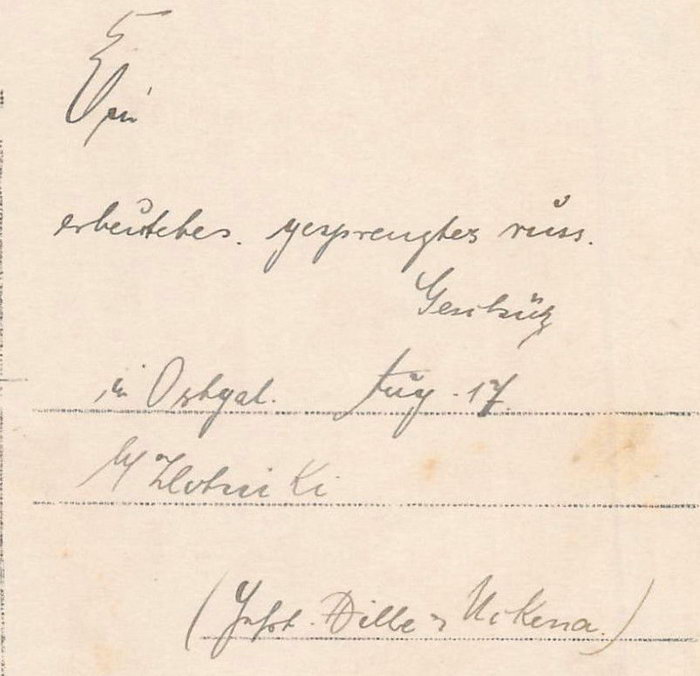 Ein
erbeutetes. gesprengtes russ.
Geschütz
in Ostgal. Aug. 17.
Zlotniki
Dilbe